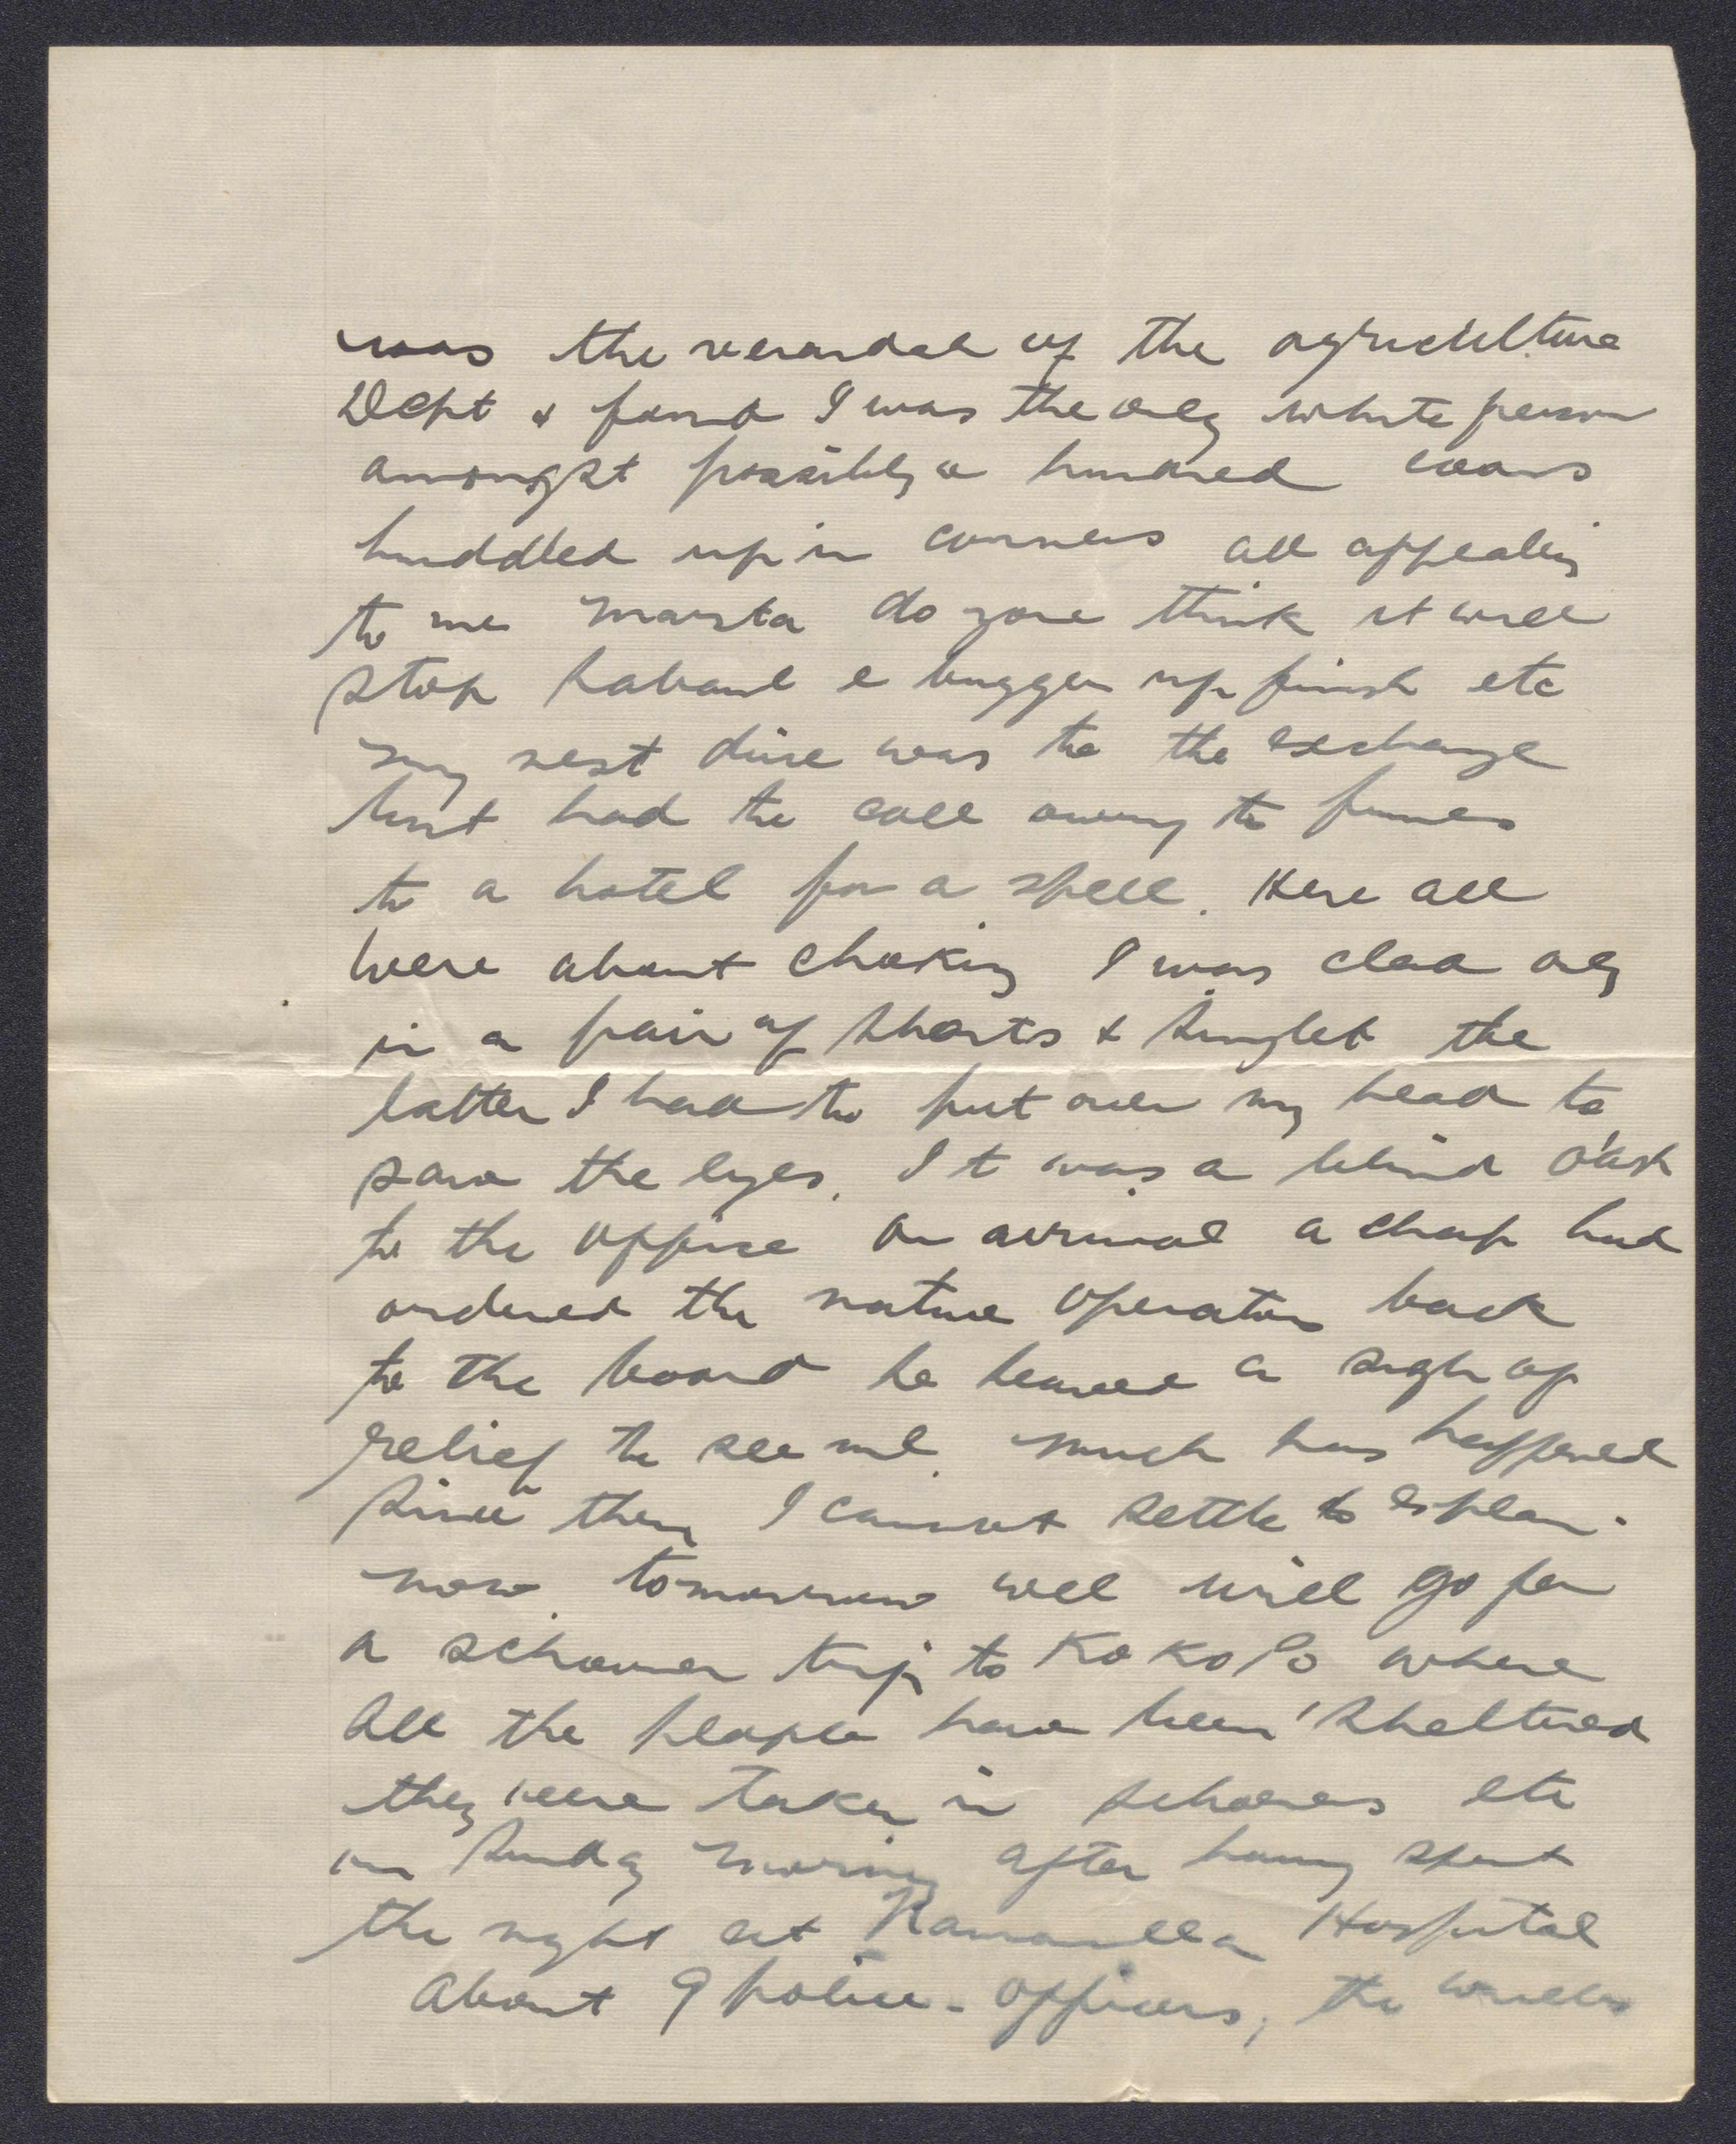 was the verandah of the agriculture
Dept & found I was the only white person
amongst possibly a hundred coons
huddled up in corners all appealing
to me Marsta do you think it will
stop Rabaul e bugger up finish etc
my next dive was to the exchange
but had to call owing to fumes
to a hotel for a spell. Here all
were about choking I was clad only
in a pair of shorts & singlet the
latter I had to put over my head to
save the eyes. It was a blind dash
to the office on arrival a chap had
ordered the native operators back
to the board he heaved a sigh of
relief to see me. much has happened
since then I cannot settle to explain
now. tomorrow we will go for
a schooner trip to Kokopo where
all the people have been sheltered
they were taken in schooners etc
on Sunday morning after having spent
the night at Namanulla Hospital
About 9 police-officers, the wireless